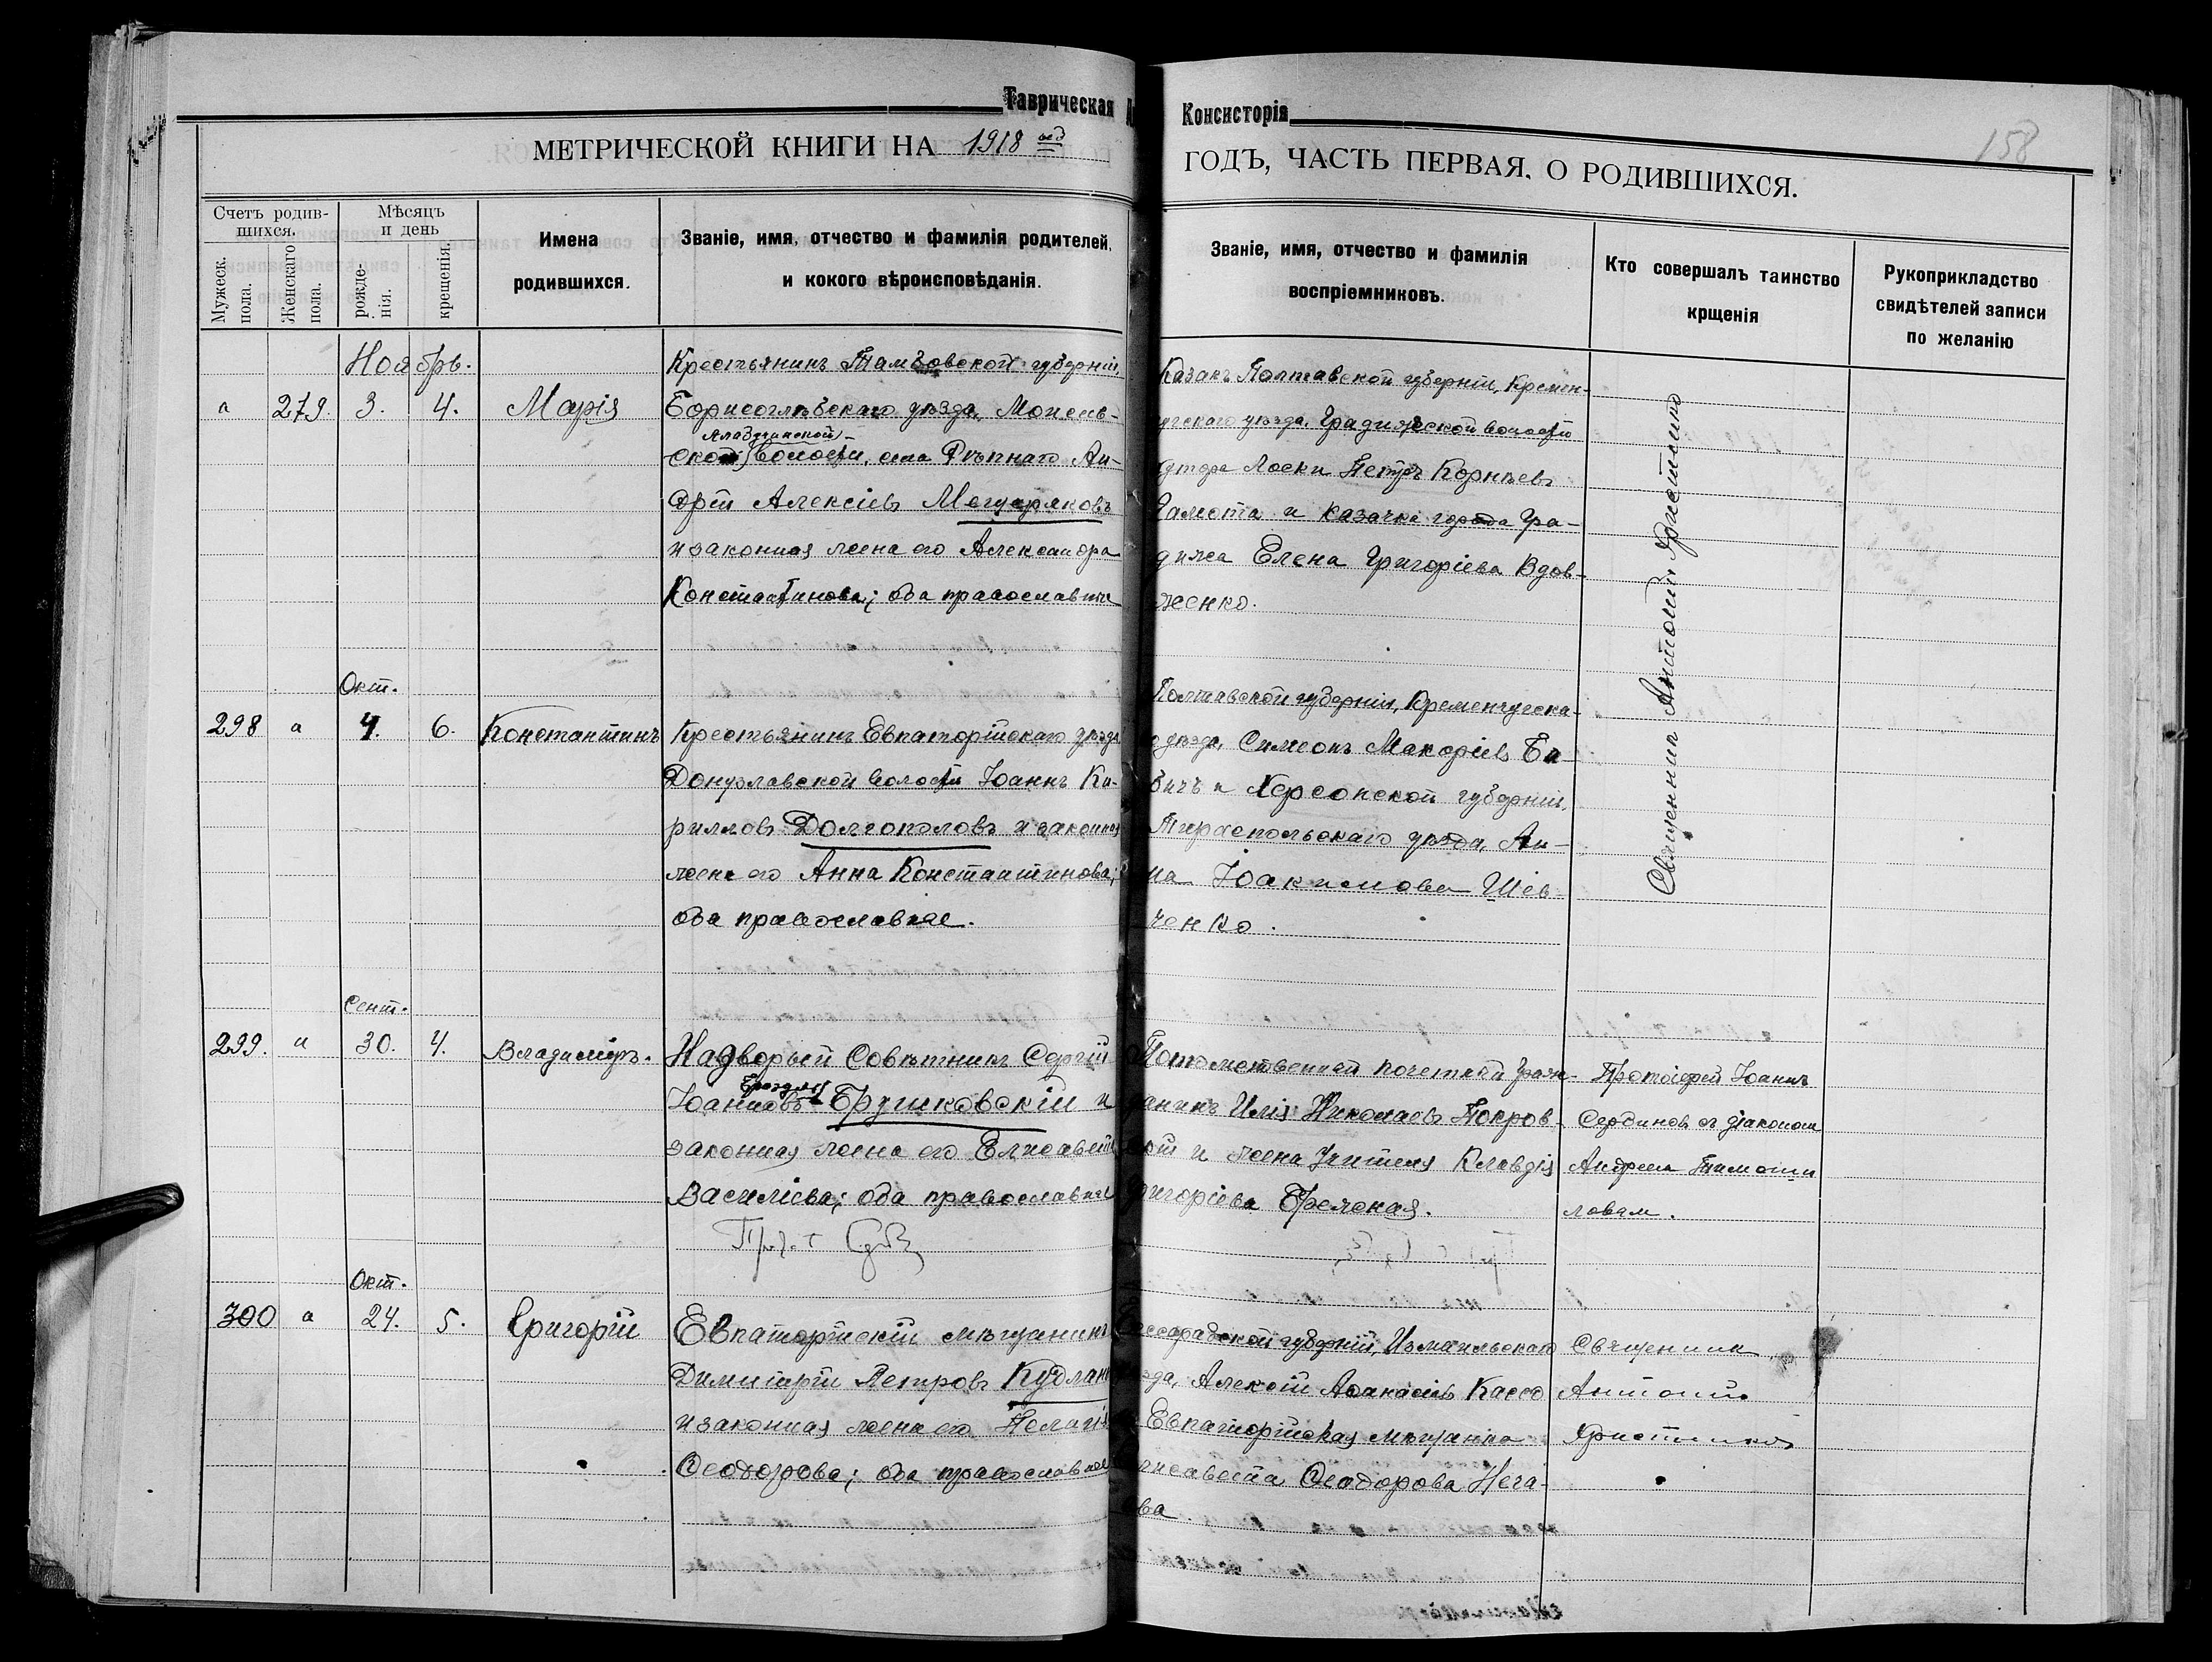 Таврическая
Консисторія
158
МЕТРИЧЕСКОЙ КНИГИ НА 1918
ГОДЪ, ЧАСТЬ ПЕРВАЯ, О РОДИВШИХСЯ.
Счетъ родив-
шихся.
Мужеск.
пола.
Женскаго
пола.
Мѣсяцъ
и день
рожде-
нія.
крещенія.
Имена
родившихся.
Званіе, имя, отчество и фамилія родителей,
и кокого вѣроисповѣданія.
Званіе, имя, отчество и фамилія
воспріемниковъ.
Кто совершалъ таинство
крщенія
Рукоприкладство
свидѣтелей записи
по желанію
Ноябрь.
а 279. 3. 4. Марія
Крестьянинъ Тамбовской губерніи,
Борисоглѣбскаго уѣзда,
волости, села Андрей Алексіевъ Мещеряковъ
и законная жена его Александра
Константинова; оба православные
Казакъ Полтавской губерніи, Кремен-
чугскаго уѣзда, Градижской волости
Петръ Корнѣевъ
и казачка города Гра-
дижа Елена Григоріева Вдов-
женко.
Священникъ Антоній
Окт.
298 а 4. 6. Константинъ
Крестьянинъ Евпаторійскаго уѣзда
Донузлавской волости Іоаннъ Ки-
рилловъ Долгополовъ и законная
жена его Анна Константинова;
оба православные.
Полтавской губерніи, Кременчугска-
уѣзда, Симеонъ Макаріевъ Ба-
бичъ и Херсонской губерніи,
Тираспольскаго уѣзда, Ан-
на Іоакимова Шев-
ченко.
Сент.
299. а 30. 4. Владиміръ.
Надворный Совѣтникъ Сергій
Іоанновъ Брушковскій и
законная жена его Елисавета
Василіева; оба православные
Потомственный почетный граж-
данинъ Илія Николаевъ Покров-
скій и жена учителя Клавдія
Григоріева
Протоіерей Іоаннъ
Сербиновъ съ діакономъ
Андреемъ Тимоши-
ловым.
Окт.
300 а 24. 5. Григорій
Евпаторійскій мѣщанинъ
Димитрій Петровъ Кудлан
и законная жена его Пелагія
Ѳеодорова; оба православные
Бессарабской губерніи, Измаильскаго
уѣзда, Алексій Аѳанасіевъ Кассо
Евпаторійская мѣщанка
Елисавета Ѳеодорова Нега-
ва.
Священникъ
Антоній